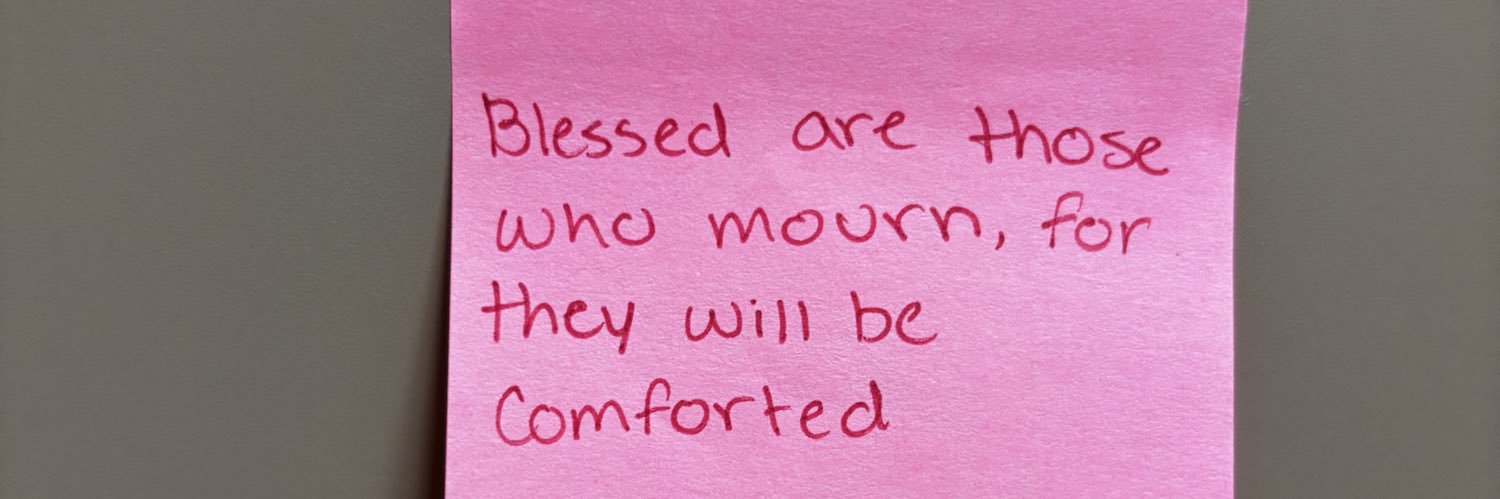 Blessed are those
who mourn, for
they will be
Comforted